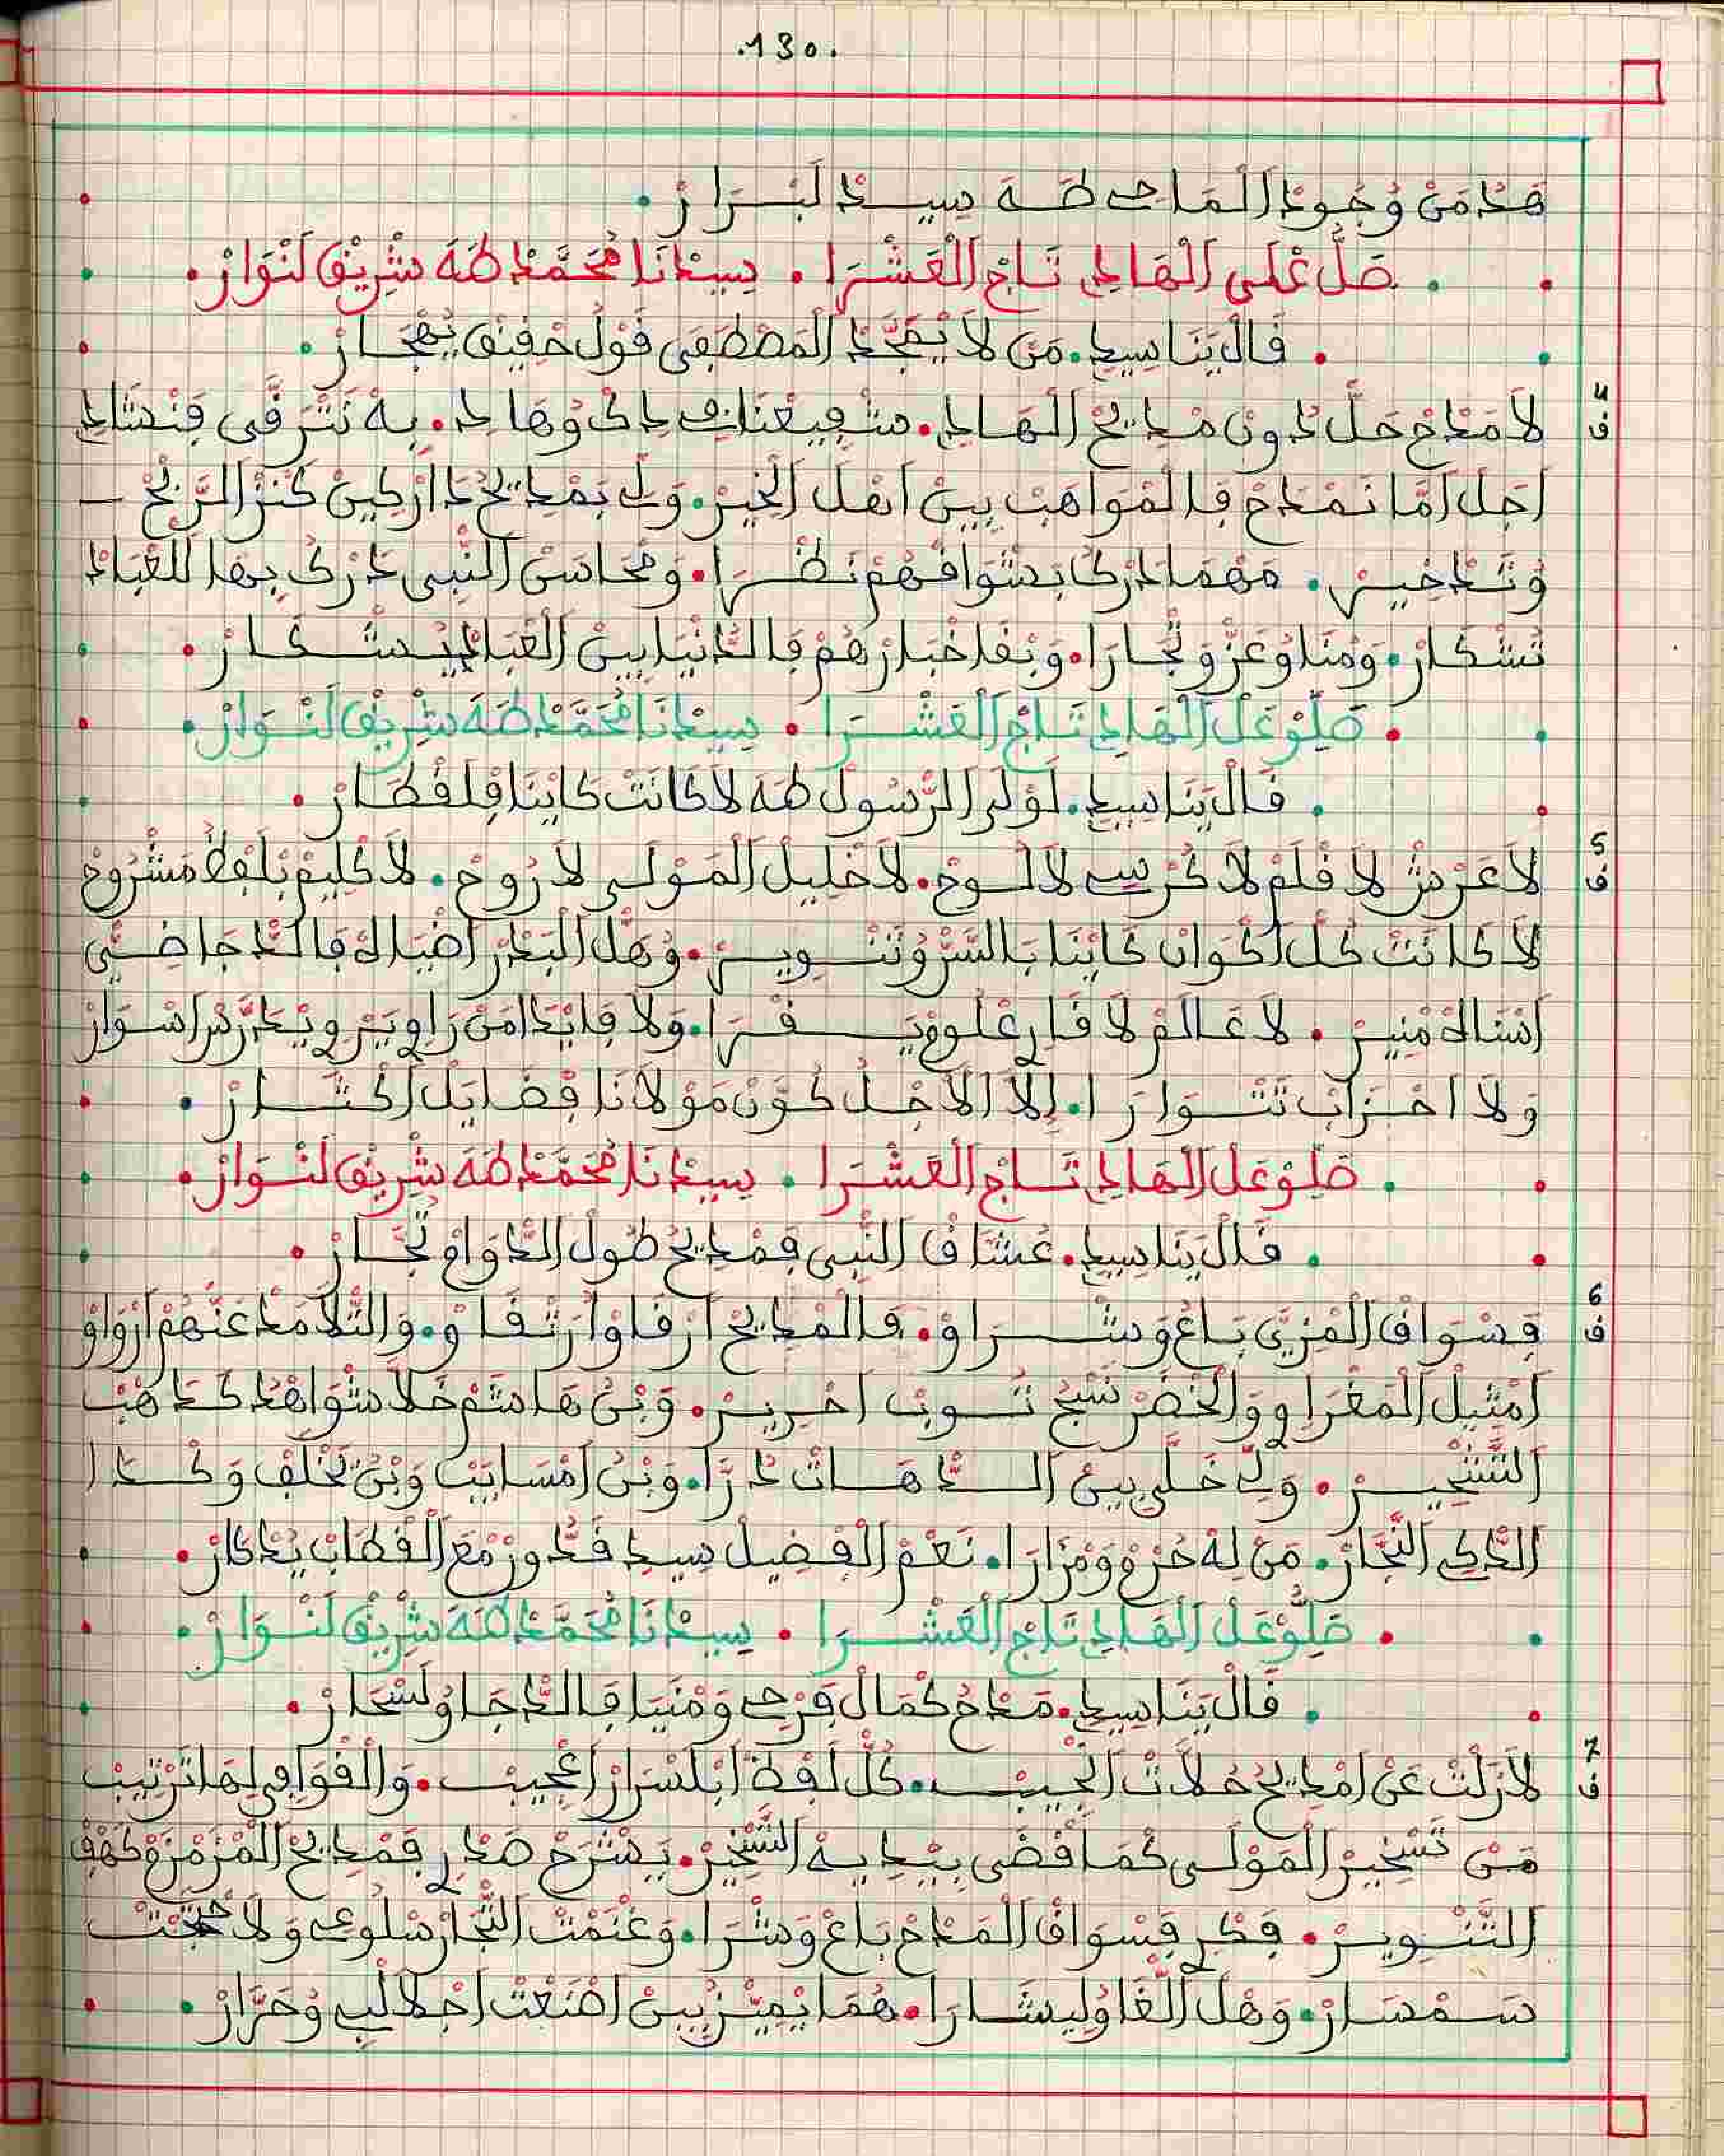 .130.
هَدَا مَنْ وُجُودْ اَلْمَاحِي طَهَ سِيدْ لَبْرَارْ.
. صَلُّ عْلَى اَلْهَادِي تَاجْ اَلْعَشْرَا . سِيدْنَا مُحَمَّدْ طَهَ شْرِيفْ لَنْوَارْ.
. قَالْ يَنَاسِيدِي. مَنْ لَا يْمَجَّدْ اَلْمَصْطَفَى قَوْلُ خْفِيفْ يُهْجَارْ.
4
ف
لَا مَدْحْ حَلَّ دُونْ مْدِيحْ اَلْهَادِي. شْفِيعْنَا وُهَادِي. بِهْ نَتْرَقَّى فِنْشَادِي
اَجَلْ اَمَّا نَمْدَحْ فَالْمْوَاهَبْ بِينْ اَهْلْ اَلْخِيرْ. وَلِّي بَمْدِيحُ دَارْكِينْ كَنْزْ اَلرَّبْحْ
وُتَدْخِيرْ. مَهْمَا دَرْكُ بَشْوَاقْهُمْ نَظْرَا. وَمْحَاسَنْ اَلنّْبِي دَرْكُ بِهَا لَلْعْبَادْ
تَشْكَارْ. وَهْنَا وُعَزّْ وَتْجَارَا. وَبْقَا خْبَارْهُمْ فَالدَّنْيَا بِينْ اَلْعْبَادْ
. صَلِّوْ عَلْ اَلْهَادِي تَاجْ اَلْعَشْرَا . سِيدْنَا مُحَمَّدْ طَهَ شْرِيفْ لَنْوَارْ.
. قَالْ يَنَاسِيدِي. لَوْلَى اَلرَّسُولْ طَهَ لَا كَانَتْ كَايْنَا فِلَقْطَارْ
5
ف
لَا عَرْشْ لَا قْلَمْ لَا كُرْسِي لَا لَوْحْ. لَا خْلِيلْ اَلْمَوْلَى لَا رُوحْ. لَا كْلِيمْ بْلَفْظُ مَشْرُوحْ
لَا كَانَتْ كُلّْ اَكْوَانْ كَايْنَا بَالسَّرّْ وُتَنْوِيرْ. وُهَلّْ اَلْبَدْرْ اَضْيَاهْ فَالدّْجَا ضَيِّ
اَسْنَاهْ مْنِيرْ. لَا عَالَمْ لَا قَارِي عْلُومْ يَقْرَا. وَلَا فَايْدَا مَنْ رَاوِي يَرْوِي اَسْوَارْ
وَلَا اَحْزَابْ تَتْوَارَا. اِلَّا اَلْأَجْلُ كَوَّنْ مَوْلَانَا فْضَايَلْ اَكْتَارْ.
. صَلِّوْ عَلْ اَلْهَادِي تَاجْ اَلْعَشْرَا . سِيدْنَا مُحَمَّدْ طَهَ شْرِيفْ لَنْوَارْ.
. قَالْ يَنَاسِيدِي. عُشَاقْ اَلنّْبِي فَمْدِيحُ طُولْ اَلدّْوَامْ تُجَّارْ
6
ف
فَسْوَاقْ اَلْمْزِيَّ بَاعُ وَشْرَاوْ. فَالْمْدِيحْ اَرْقَاوْ اَرْتْقَاوْ. وَالتّْلَامَدْ عَنْهُمْ اَرْوَاوْ
اَمْتِيلْ اَلْمَغْرَاوِي وَالْخْضَرْ نْسَجْ تُوبْ اَحْرِيرْ. وَبْنْ هَاشَمْ خَلَّا شْوَاهْدُ كَدَاهَبْ
وَلِّي خَلَّى بِينْ اَلدّْهَاتْ دُرَّا. وَبْنْ اَمْسَايَبْ وَبْنْ خْلِفْ وَكْدَا
اَلدّْكِي اَلنّْجَارْ. مَنْ لِهْ حُرْمْ وَمْزَارَا. نَعْمْ اَلْفْضِيلْ سِيدِي قَدُّورْ مْعَ اَلْقْطَابْ يُدْكَارْ.
. صَلِّوْ عَلْ اَلْهَادِي تَاجْ اَلْعَشْرَا . سِيدْنَا مُحَمَّدْ طَهَ شْرِيفْ لَنْوَارْ.
. قَالْ يَنَاسِيدِي. مَدْحُ كْمَالْ فَرْحِي وَمْنِيَا فَالدّْجَا وُلَسْحَارْ.
7
ف
لَا زَلْتْ عَنْ اَمْدِيحُ خُلَاتْ اَلْحْبِيبْ. كُلّْ لَفْظَ اَبْلَسْرَارْ اَعْجِيبْ. وَالْقْوَافِي لِهَا تَرْتِيبْ
مَنْ تَسْخِيرْ اَلْمَوْلَى كْمَا قْضَى بِيدِيهْ اَلتَّسْخِيرْ. يَشْرَحْ صَدْرِي فَمْدِيحْ اَلْمَزْمَزْمْ كَهْفْ
اَلتَّنْوِيرْ. فِكْرِي فَسْوَاقْ اَلْمَدْحْ بَاعْ وَشْرَا. وَغَنْمَتْ اَلتُّجَّارْ سْلُوعِي وَلَا حْتَجْتْ
سَمْسَارْ. وَهْلْ اَلْغَا وُلِيشَارَا. هُمَا يْمِيّْزُ بِينْ اَصْنَعْتْ اَجْلَالْبِي وُحَرَّارْ.